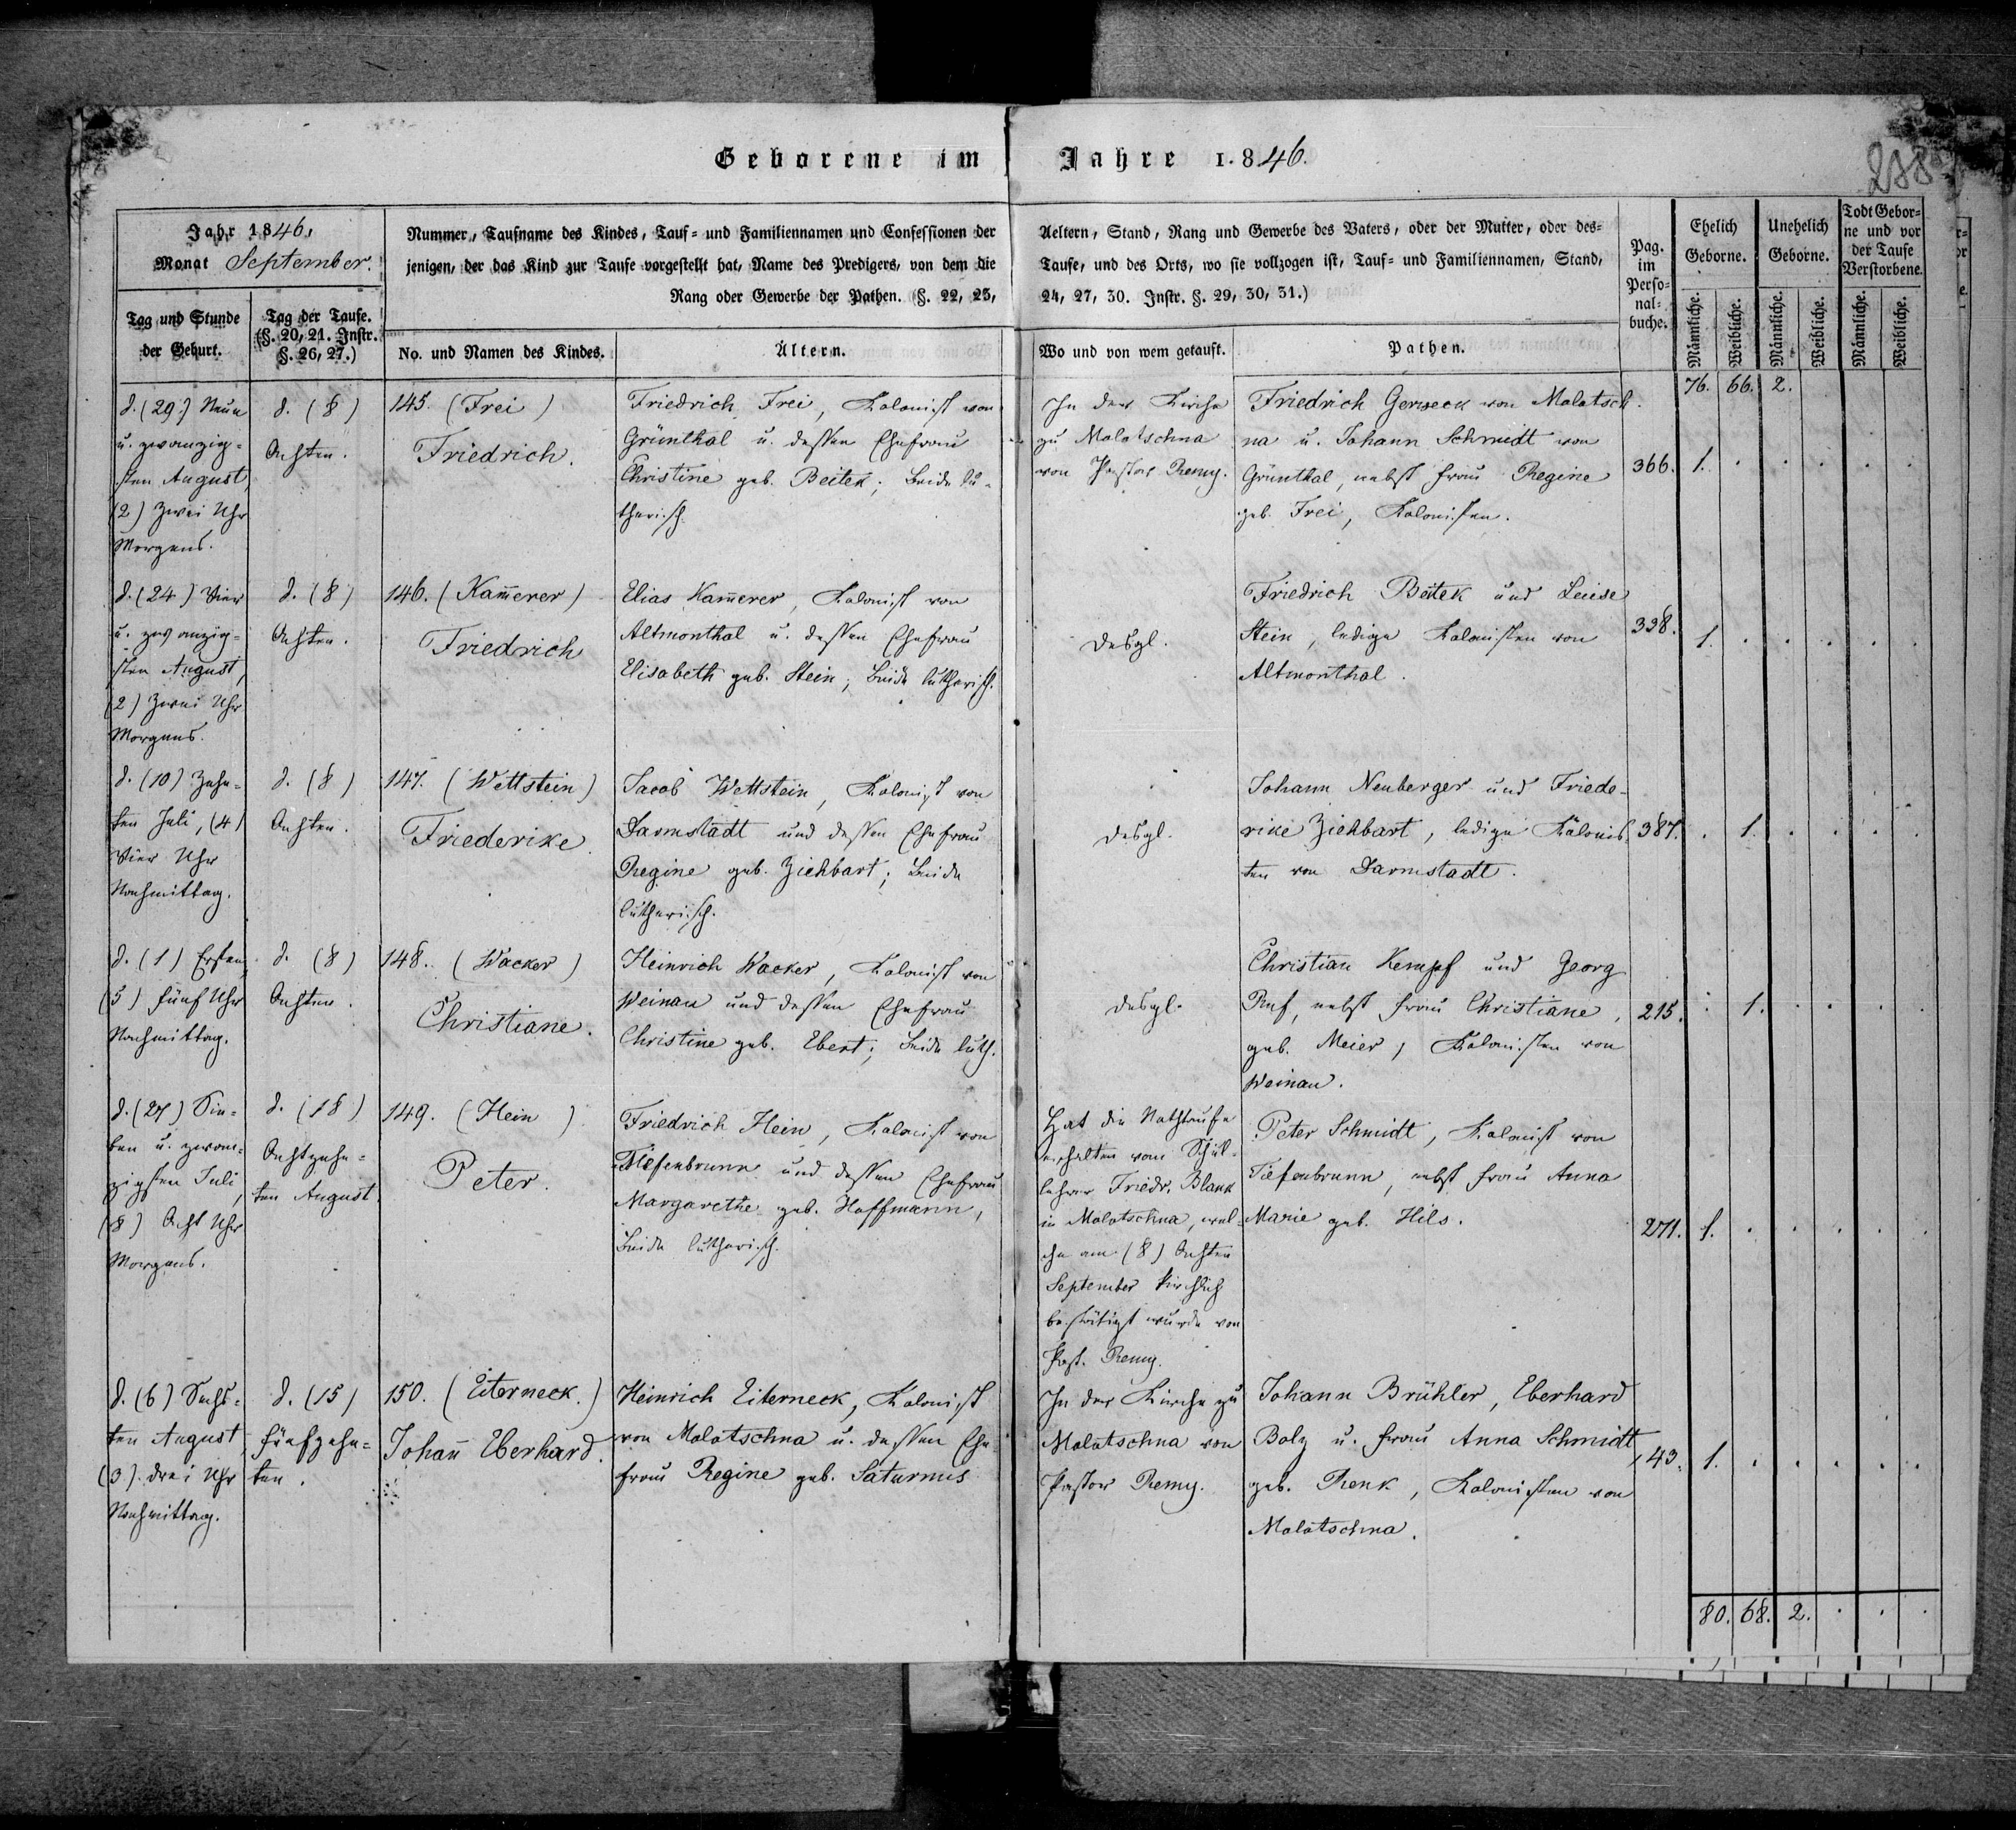 Geborene im Jahre 1.846.
288
Jahr 1846,
Monat September.
Tag und Stunde
der Geburt.
Tag der Taufe.
(§. 20, 21. Instr.
§. 26, 27.)
Nummer, Taufname des Kindes, Tauf- und Familiennamen und Confessionen der
jenigen, der das Kind zur Taufe vorgestellt hat, Name des Predigers, von dem die
Rang oder Gewerbe der Pathen. (§. 22, 23,
No. und Namen des Kindes.
Ältern.
Aeltern, Stand, Rang und Gewerbe des Vaters, oder der Mutter, oder des-
Taufe, und des Orts, wo sie vollzogen ist, Tauf- und Familiennamen, Stand,
24, 27, 30. Instr. §. 29, 30, 31.)
Wo und von wem getauft.
Pathen.
Pag.
im
Perso-
nal-
buche.
Ehelich
Geborne.
Unehelich
Geborne.
Todt Gebor-
ne und vor
der Taufe
Verstorbene.
Männliche.
Weibliche.
Männliche.
Weibliche.
Männliche.
Weibliche.
76. 66. 2.
d. (29.) Neun
u. zwanzig-
sten August,
(2) Zwei Uhr
Morgens.
d. (8)
Achten.
145. (Frei)
Friedrich.
Friedrich Frei, Kolonist von
Grünthal u. dessen Ehefrau
Christine geb. Beitek; beide lu-
therisch.
In der Kirche
zu Molotschna
von Pastor Remy.
Friedrich Gerweck von Molotsch
na u. Johann Schmidt von
Grünthal, nebst Frau Regine
geb. Frei, Kolonisten.
366. 1. . . . . .
d. (24) Vier
u. zwanzig-
sten August,
(2) Zwei Uhr
Morgens.
d. (8)
Achten.
146. (Kam̄erer)
Friedrich
Elias Kam̄erer, Kolonist von
Altmonthal u. dessen Ehefrau
Elisabeth geb. Stein; beide lutherisch.
desgl.
Friedrich Beitek und Leuise
Stein, ledige Kolonisten von
Altmonthal.
338. 1. . . . . .
d. (10) Zehn-
ten Juli, (4)
Vier Uhr
Nachmittag.
d. (8)
Achten.
147. (Wettstein)
Friederike.
Jacob Wettstein, Kolonist von
Darmstadt und dessen Ehefrau
Regine geb. Ziehbart; beide
lutherisch.
desgl.
Johann Neuberger und Friede-
rike Ziehbart, ledige Kolonis-
ten von Darmstadt.
387. . 1. . . . .
d. (1) Ersten,
(5) fünf Uhr
Nachmittag.
d. (8)
Achten.
148. (Wacker)
Christiane.
Heinrich Wacker, Kolonist von
Weinau und dessen Ehefrau
Christine geb. Ebert; beide luth.
desgl.
Christian Kempf und Georg
Ruf, nebst Frau Christiane,
geb. Meier, Kolonisten von
Weinau.
215. . 1. . . . .
d. (27) Sie-
ben u. zwan-
zigsten Juli,
(8) Acht Uhr
Morgens.
d. (18)
Achtzehn-
ten August.
149. (Hein)
Peter.
Friedrich Hein, Kolonist von
Tiefenbrunn und dessen Ehefrau
Margarethe geb. Hoffmann,
beide lutherisch.
Hat die Nothtaufe
erhalten vom Schul-
lehrer Friedr. Blank
in Molotschna, wel-
che am (8) Achten
September kirchlich
bestätigt wurde von
Past. Remy.
Peter Schmidt, Kolonist von
Tiefenbrunn, nebst Frau Anna
Marie geb. Hils.
271. 1. . . . . .
d. (6) Sechs-
ten August,
(3) drei Uhr
Nachmittag.
d. (15)
fünfzehn-
ten.
150. (Eiterneck.)
Johan̄ Eberhard.
Heinrich Eiterneck, Kolonist
von Molotschna u. dessen Ehe-
frau Regine geb. Saturnus
In der Kirche zu
Molotschna von
Pastor Remy.
Johann Brühler, Eberhard
Bolz u. Frau Anna Schmidt
geb. Renk, Kolonisten von
Molotschna.
143. 1. . . . . .
80. 68. 2. . . .